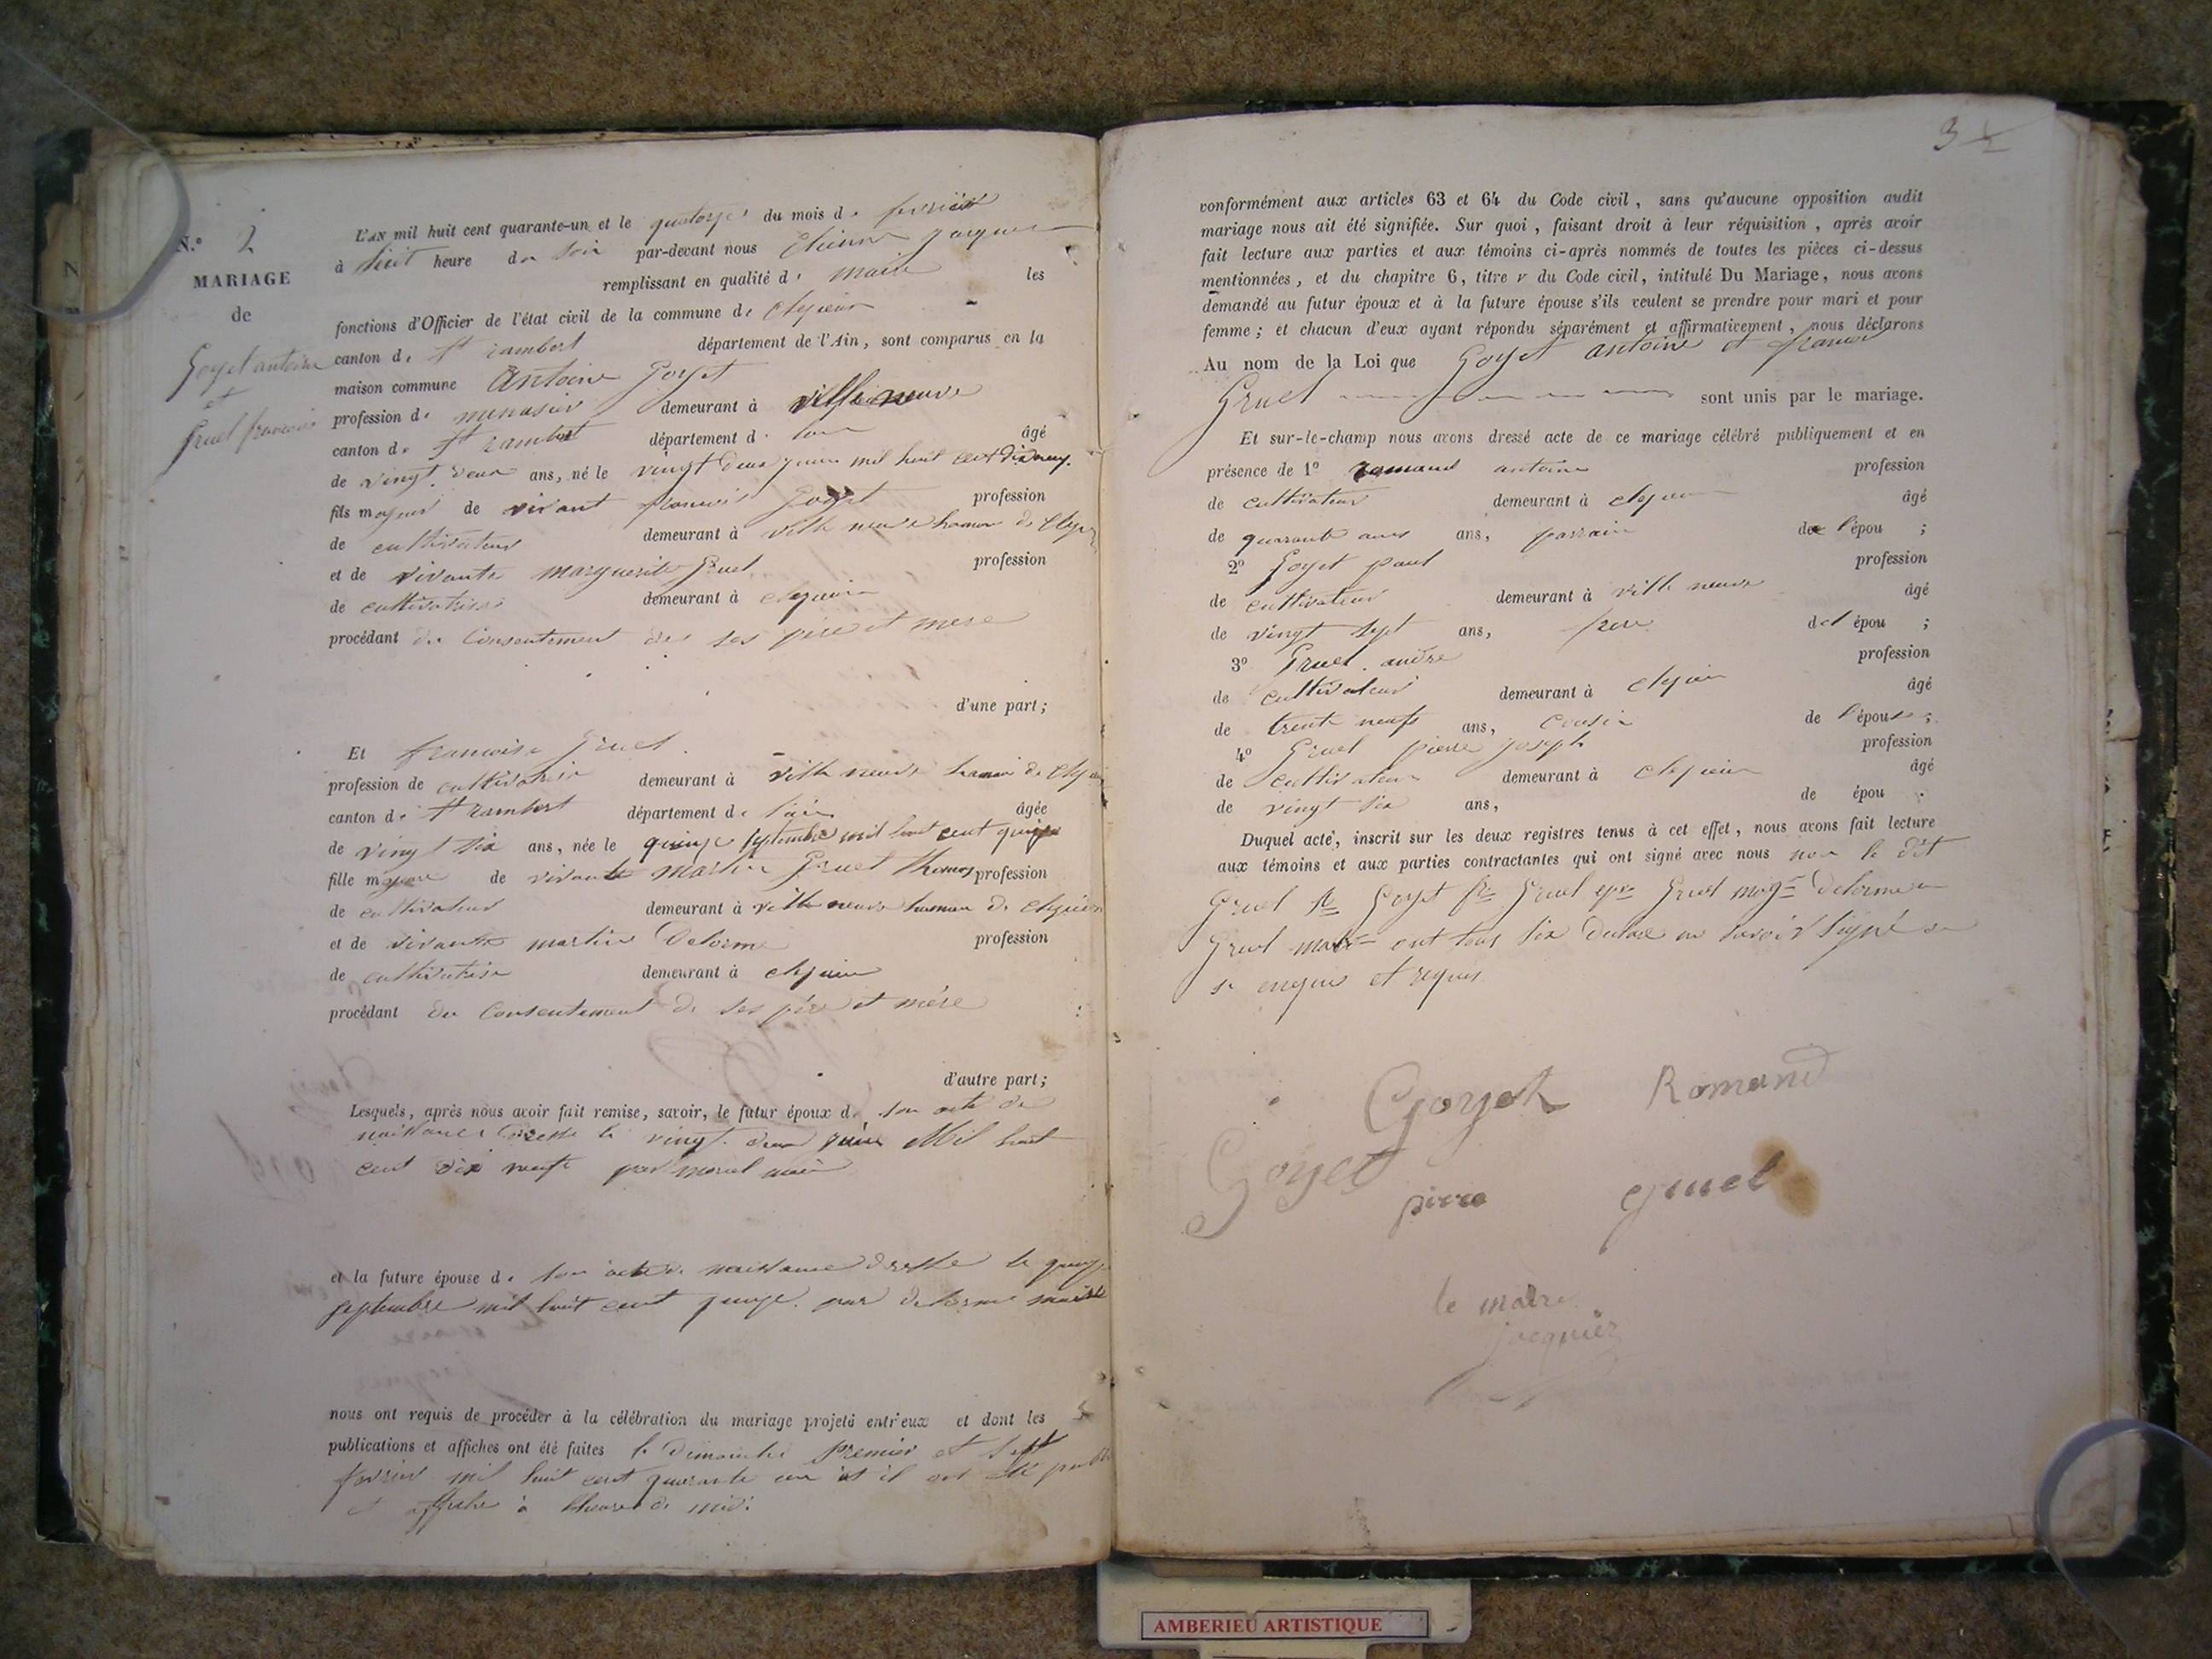 N.º 2
MARIAGE
de
Goyet antoine
et
Gruel francoise
L'AN mil huit cent quarante-un et le quatorze du mois de fevrier
à huit heure du soir par-devant nous Etienne Jacquier
remplissant en qualité de maire les
fonctions d'Officier de l'état civil de la commune de Cleyzieu
canton de St rambert département de l'Ain, sont comparus en la
maison commune Antoine Goyet
profession de menusier demeurant à ville neuve
canton de St rambert département de âgé
de vingt deux ans, né le vingt deux juin mil huit cent dix neuf
fils majeur de vivant francois Goyet profession
de cultivateur demeurant à ville neuve hameau de Cleyzieu
et de vivante marguerite Gruel profession
de cultivatrice demeurant à cleyzieu
procédant du Consentement de ses pere et mere
d'une part;
Et francoise Gruel
profession de cultivatrice demeurant à ville neuve hameau de Cleyzieu
canton de St rambert département de l'ain âgée
de vingt six ans, née le quinze septembre mil huit cent quinze
fille majeure de vivante martin Gruel thomas profession
de cultivateur demeurant à ville neuve hameau de cleyzieu
et de vivante martine Delorme profession
de cultivatrice demeurant à cleyzieu
procédant du Consentement de ses père et mère
d'autre part;
Lesquels, après nous avoir fait remise, savoir, le futur époux de son acte de
naissance dresse le vingt deux juin Mil huit
cent dix neuf par morel maire
et la future épouse de son acte de naissance dresse le quinze
septembre mil huit cent quinze par delorme maire
nous ont requis de procéder à la célébration du mariage projeté entr'eux et dont les
publications et affiches ont été faites le Dimanche premier et sept
fevrier mil huit cent quarante un et il ont été
et affiche à lheure de midi
3
conformément aux articles 63 et 64 du Code civil, sans qu'aucune opposition audit
mariage nous ait été signifiée. Sur quoi, faisant droit à leur réquisition, après avoir
fait lecture aux parties et aux témoins ci-après nommés de toutes les pièces ci-dessus
mentionnées, et du chapitre 6, titre v du Code civil, intitulé Du Mariage, nous avons
demandé au futur époux et à la future épouse s'ils veulent se prendre pour mari et pour
femme; et chacun d'eux ayant répondu séparément et affirmativement, nous déclarons
Au nom de la Loi que Goyet antoine et
Gruel sont unis par le mariage.
Et sur-le-champ nous avons dressé acte de ce mariage célébré publiquement et en
présence de 1º romand antoine profession
de cultivateur demeurant à cleyzieu âgé
de quarante ans, parrain de l'épou ;
2º Goyet paul profession
de cultivateur demeurant à ville neuve âgé
de vingt sept ans, frere del épou ;
3º Gruel andre profession
de cultivateur demeurant à cleyzieu âgé
de trente neuf ans, cousin de l'épouse ;
4º Gruel pierre joseph profession
de cultivateur demeurant à cleyzieu âgé
de vingt six ans, de épou .
Duquel acte, inscrit sur les deux registres tenus à cet effet, nous avons fait lecture
aux témoins et aux parties contractantes qui ont signé avec nous non le dit
Gruel Goyet Gruel Gruel Delorme
Gruel ont tous six savoir signé de
ce enquis et requis
Goyet Romand
Goyet
pirre gruel
le maire
jacquier
AMBERIEU ARTISTIQUE